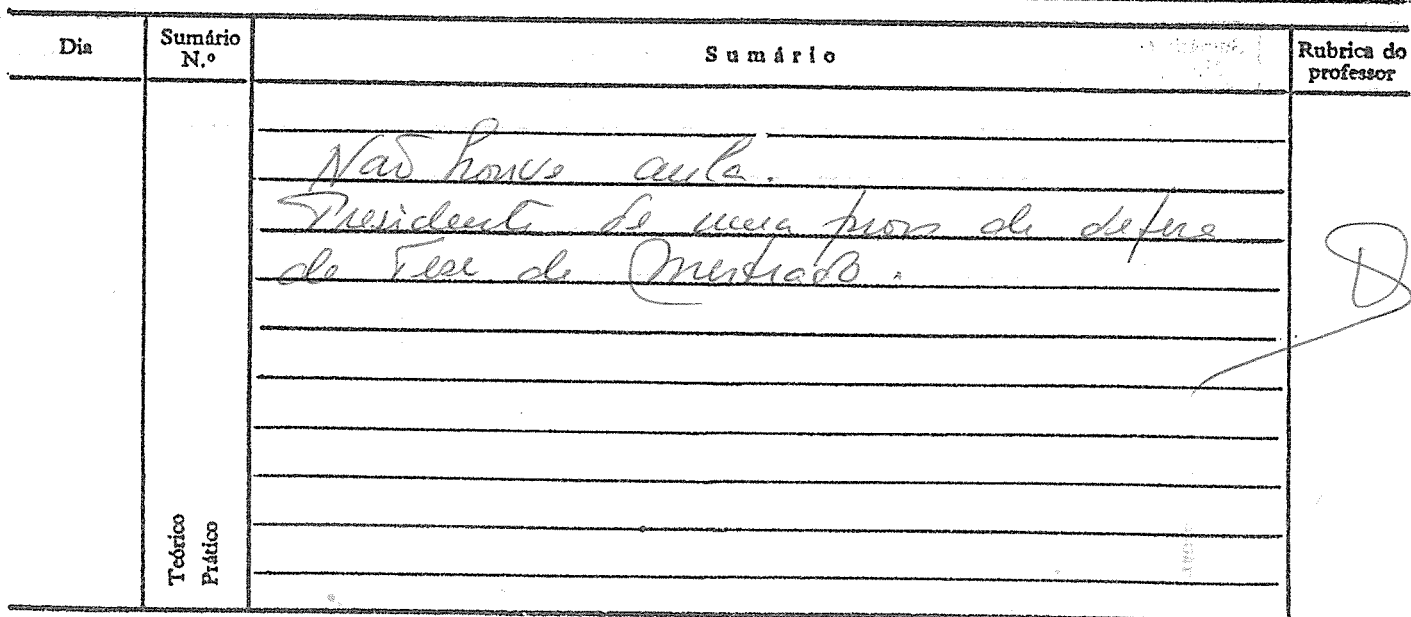 Dia
Sumário N.º
Sumário
Rubrica do professor
Não houve aula.
Presidente de uma prova de defesa
de Tese de Mestrado.
Teórico
Prático